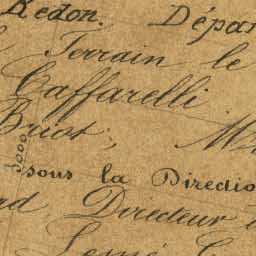 Redon. Dépar
Terrain le
Caffarelli
Briot,
sous la Directio
Directeur